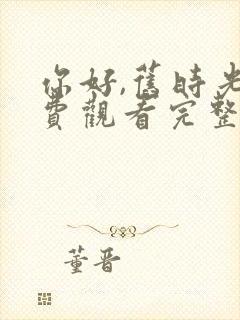 你好,舊時光
費觀看完整
董晋